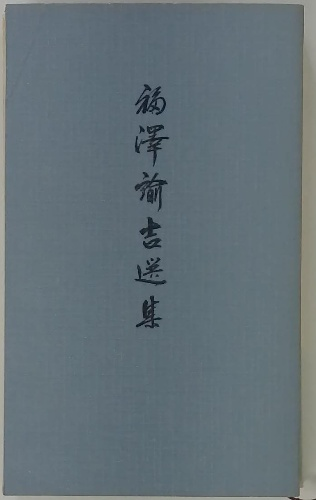 福澤諭吉選集